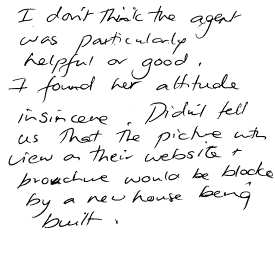 I don't think the agent
was particularly
helpful or good.
I found her attitude
insincere. Didn't tell
us that the picture with
view on their website +
brouchure would be blocked
by a new house being
built.